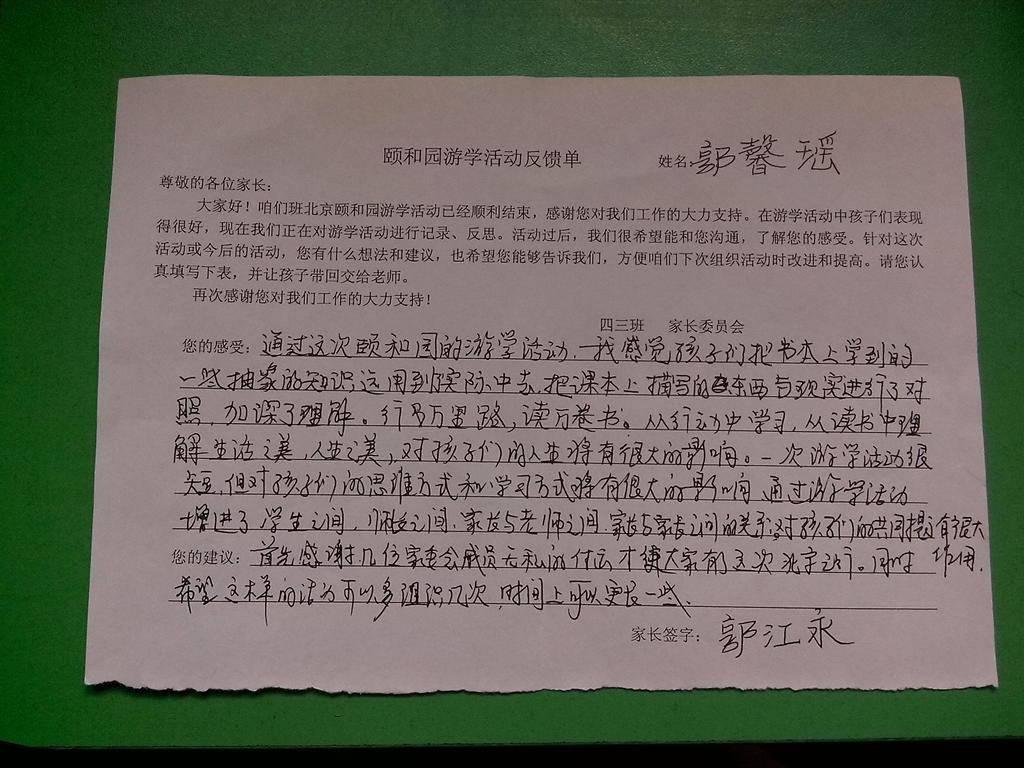 颐和园游学活动反馈单 姓名:郭馨瑶
尊敬的各位家长:
大家好！咱们班北京颐和园游学活动已经顺利结束，感谢您对我们工作的大力支持。在游学活动中孩子们表现
得很好，现在我们正在对游学活动进行记录、反思。活动过后，我们很希望能和您沟通，了解您的感受。针对这次
活动或今后的活动，您有什么想法和建议，也希望您能够告诉我们，方便咱们下次组织活动时改进和提高。请您认
真填写下表，并让孩子带回交给老师。
再次感谢您对我们工作的大力支持！
四三班 家长委员会
您的感受: 通过这次颐和园的游学活动，我感觉孩子们把书本上学到的
一些抽象的知识运用到实际中去，把课本上描写的东西与现实进行了对
照，加深了理解。行万里路，读万卷书。从行动中学习，从读书中理
解生活之美，人生之美，对孩子们的人生将有很大的影响。一次游学活动很
短，但对孩子们的思维方式和学习方式将有很大的影响，通过游学活动
增进了学生之间，师生之间，家长与老师之间，家长与家长之间的关系对孩子们的共同提高有很大
作用。
您的建议: 首先感谢几位家委会成员无私的付出才使大家有这次北京之行。同时
希望这样的活动可以多组织几次，时间上可以更长一些。
家长签字: 郭江永